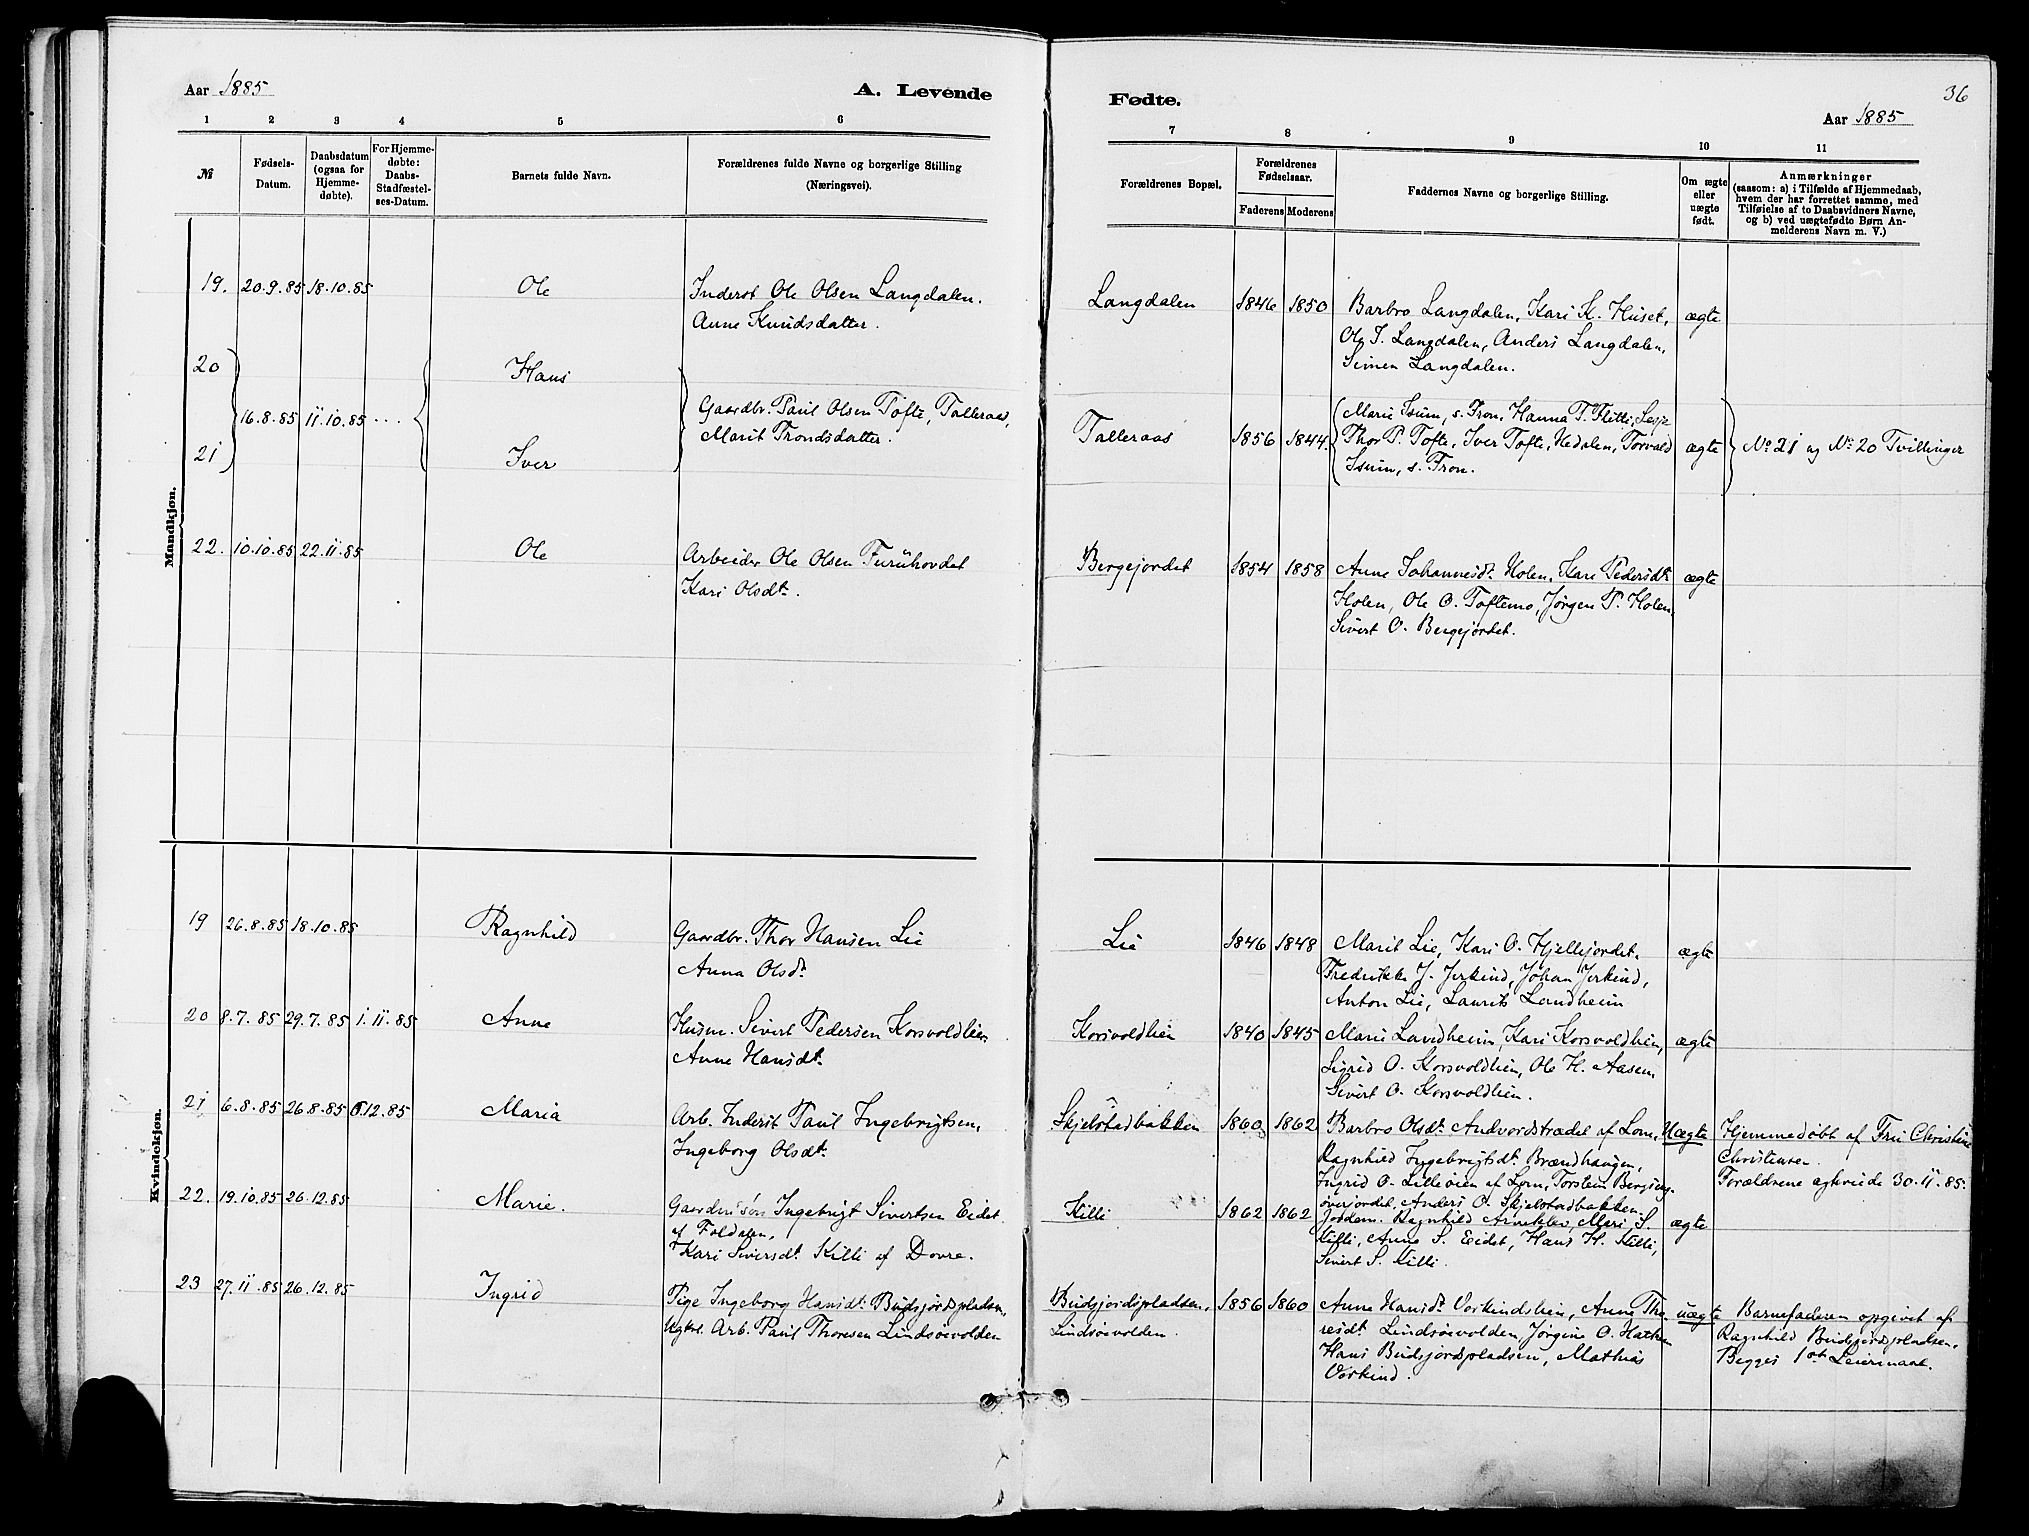 Aar 1885
A. Levende
1 2 3 4 5 6
№
Fødsels-
Datum.
Daabsdatum
(ogsaa for
Hjemme-
døbte).
For Hjemme-
døbte:
Daabs-
Stadfæstel-
ses-Datum.
Barnets fulde Navn.
Forældrenes fulde Navne og borgerlige Stilling
(Næringsvei).
Mandkjøn.
19. 20.9.85 18.10.85 Ole Inderst Ole Olsen Langdalen.
Anne Knudsdatter.
20 Hans
16.8.85 11.10.85 .... Gaardbr. Paul Olsen Tofte, Talleraas,
Marit Trondsdatter.
21 Iver
22. 10.10.85 22.11.85 Ole Arbeider Ole Olsen Furuhovdet
Kari Olsdt.
Kvindekjøn.
19 26.8.85 18.10.85 Ragnhild Gaardbr. Thor Hansen Lie
Anna Olsdt.
20 8.7.85 29.7.85 1.11.85 Anne Husm. Sivert Pedersen Korsvoldlien
Anne Hansdt.
21 6.8.85 26.8.85 6.12.85 Maria Arb. Inderst Paul Ingebrigtsen,
Ingeborg Olsdt.
22. 19.10.85 26.12.85 Marie. Gaardm.søn Ingebrigt Sivertsen Eidet
af Foldalen,
Kari Siversdt. Killi af Dovre.
23 27.11.85 26.12.85 Ingrid Pige Ingeborg Hansdt. Budsjordspladsen,
Ugkrl. Arb. Paul Thoresen Lindsøevolden
Fødte.
36
Aar 1885
7 8 9 10 11
Forældrenes Bopæl.
Forældrenes
Fødselsaar.
Faderens Moderens
Faddernes Navne og borgerlige Stilling.
Om ægte
eller
uægte
født.
Anmærkninger
(saasom: a) i Tilfælde af Hjemmedaab,
hvem der har forrettet samme, med
Tilføielse af to Daabsvidners Navne,
og b) ved uægtefødte Børn An-
melderens Navn m. V.)
Langdalen 1846 1850 Barbro Langdalen, Kari K. Huset, ægte
Ole J. Langdalen, Anders Langdalen,
Simen Langdalen.
Talleraas 1856 1844. Marie Isum, s. Fron, Hanna T. Flitti, Lesje ægte No 21 og No 20 Tvillinger
Thor P. Tofte, Iver Tofte, Hedalen, Torvald
Isum, s. Fron.
Bergejordet 1854 1858 Anne Johannesdt. Holen, Kari Pedersdt. ægte
Holen, Ole O. Toftemo, Jørgen P. Holen,
Sivert O. Bergejordet.
Lie 1846 1848 Marit Lie, Kari O. Hjellejordet. ægte
Fredrikke J. Jerkind, Johan Jerkind,
Anton Lie, Laurits Landheim
Korsvoldlien 1840 1845 Marie Landheim, Kari Korsvoldlien, ægte
Sigrid O. Korsvoldlien, Ole H. Aasen,
Sivert O. Korsvoldlien.
Skjelstadbakken 1860 1862 Barbro Olsdt. Andvordstrædet af Lom, Uægte Hjemmedøbt af Fru Christine
Christensen.
Ragnhild Ingebrigtsdt. Brændhaugen,
Forældrene ægteviede 30.11.85.
Ingrid O. Lilleøien af Lom, Torstein
øverjordet, Anders O. Skjelstadbakken.
Killi 1862 1862 Jordem. Ragnhild Arneklev, Mari S. ægte
Killi, Anne S. Eidet, Hans H. Killi,
Sivert S. Killi.
Budsjordspladsen, 1856 1860 Anne Hansdt. Vorkindslien, Anne Tho- uægte Barnefaderen opgivet af
Lindsøevolden. resdt. Lindsøevolden, Jørgine O. Hatten Ragnhild Budsjordspladsen.
Hans Budsjordspladsen, Mathias Begges 1st Leiermaal.
Vorkind.